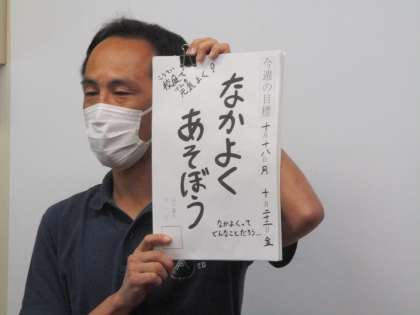 今週の目標
十月十八日月 十月二十二日金
こうてい
校庭で
元気よく?
なかよく
あそぼう
なかよくって
どんなことだろう…